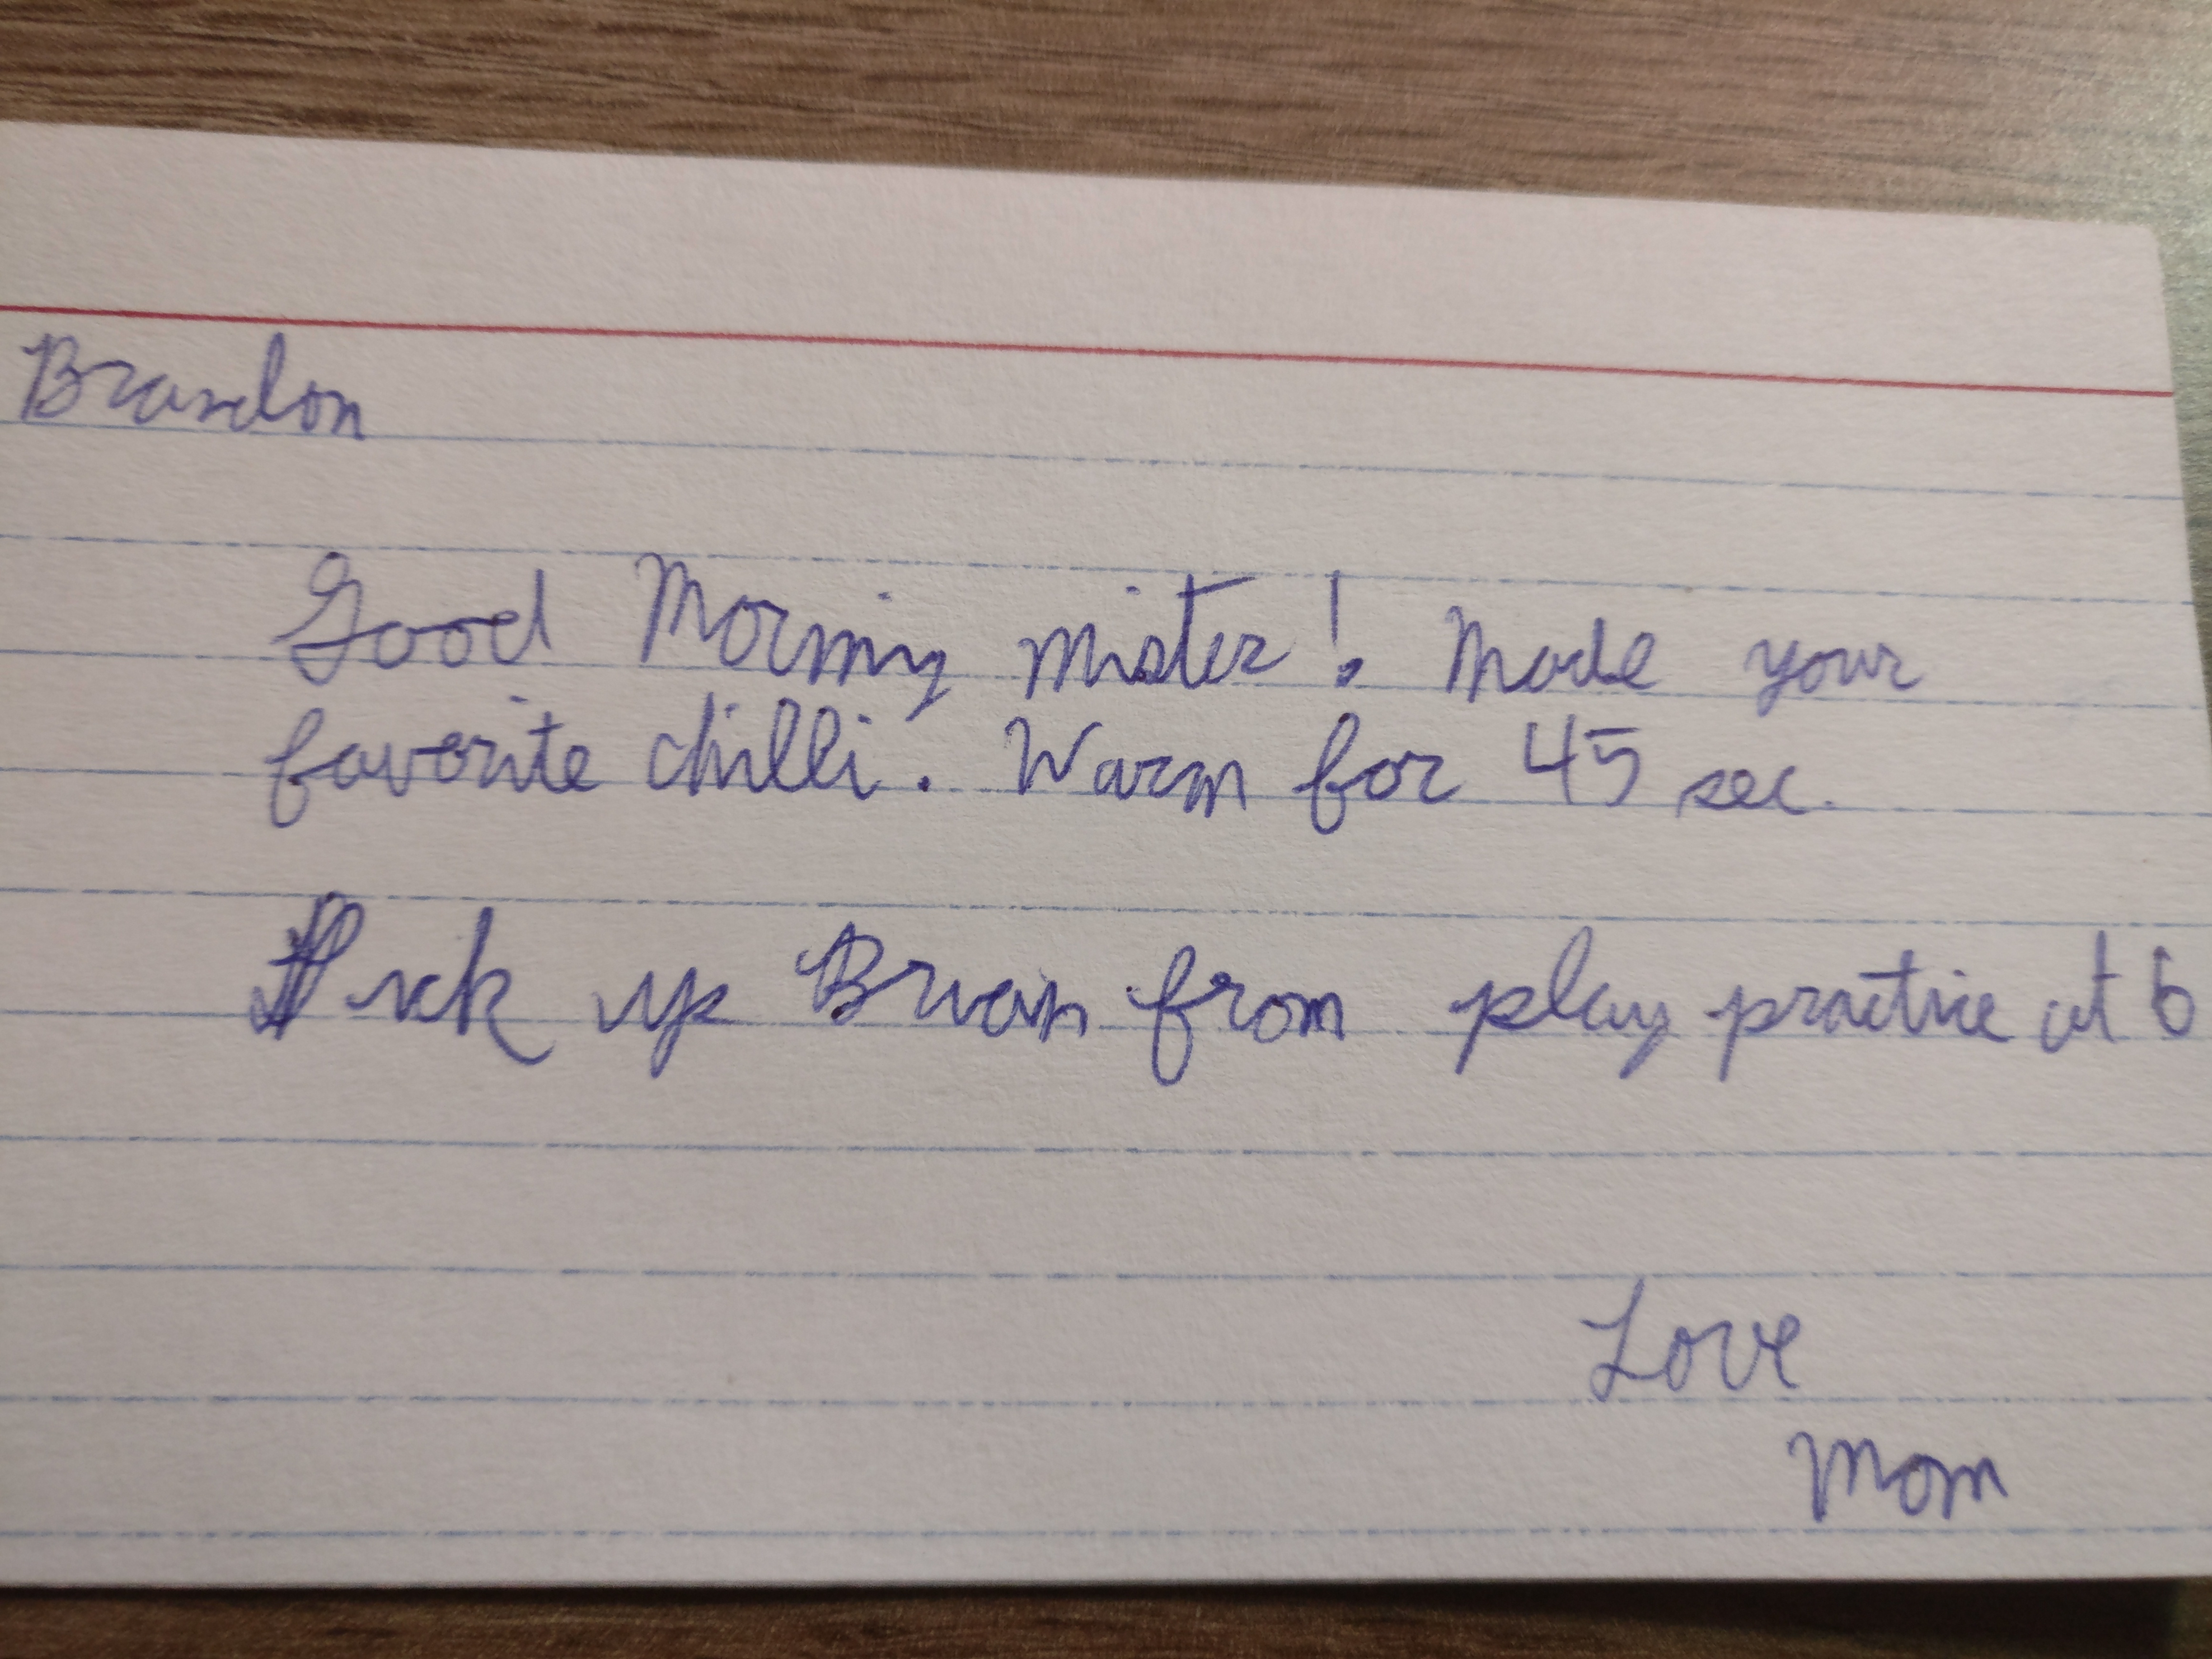 Brandon
Good Morning Mister! Made your
favorite chilli. Warm for 45 sec.
Pick up Brian from play practice at 6
Love
Mom